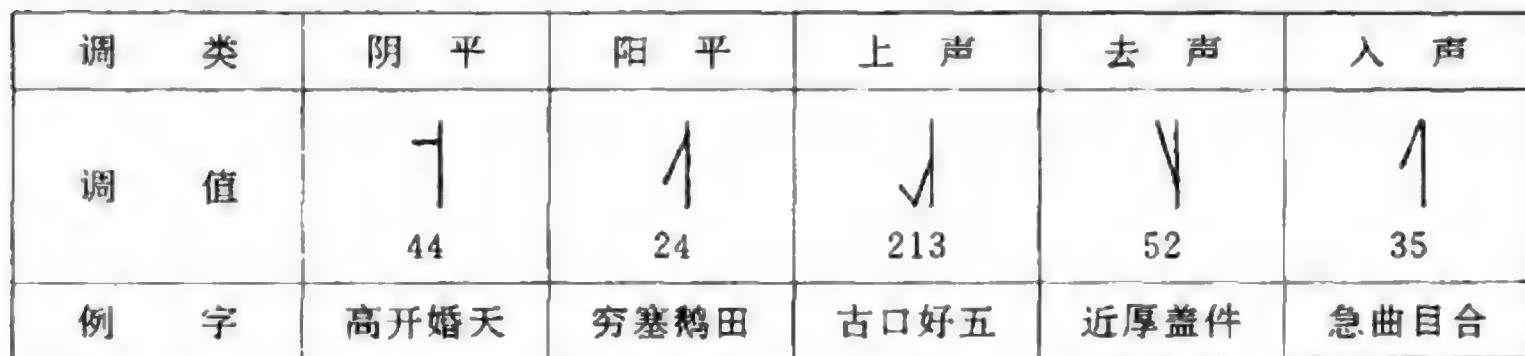 调类 阴平 阳平 上声 去声 入声
调值 44 24 213 52 35
例字 高开婚天 穷塞鹅田 古口好五 近厚盖件 急曲目合